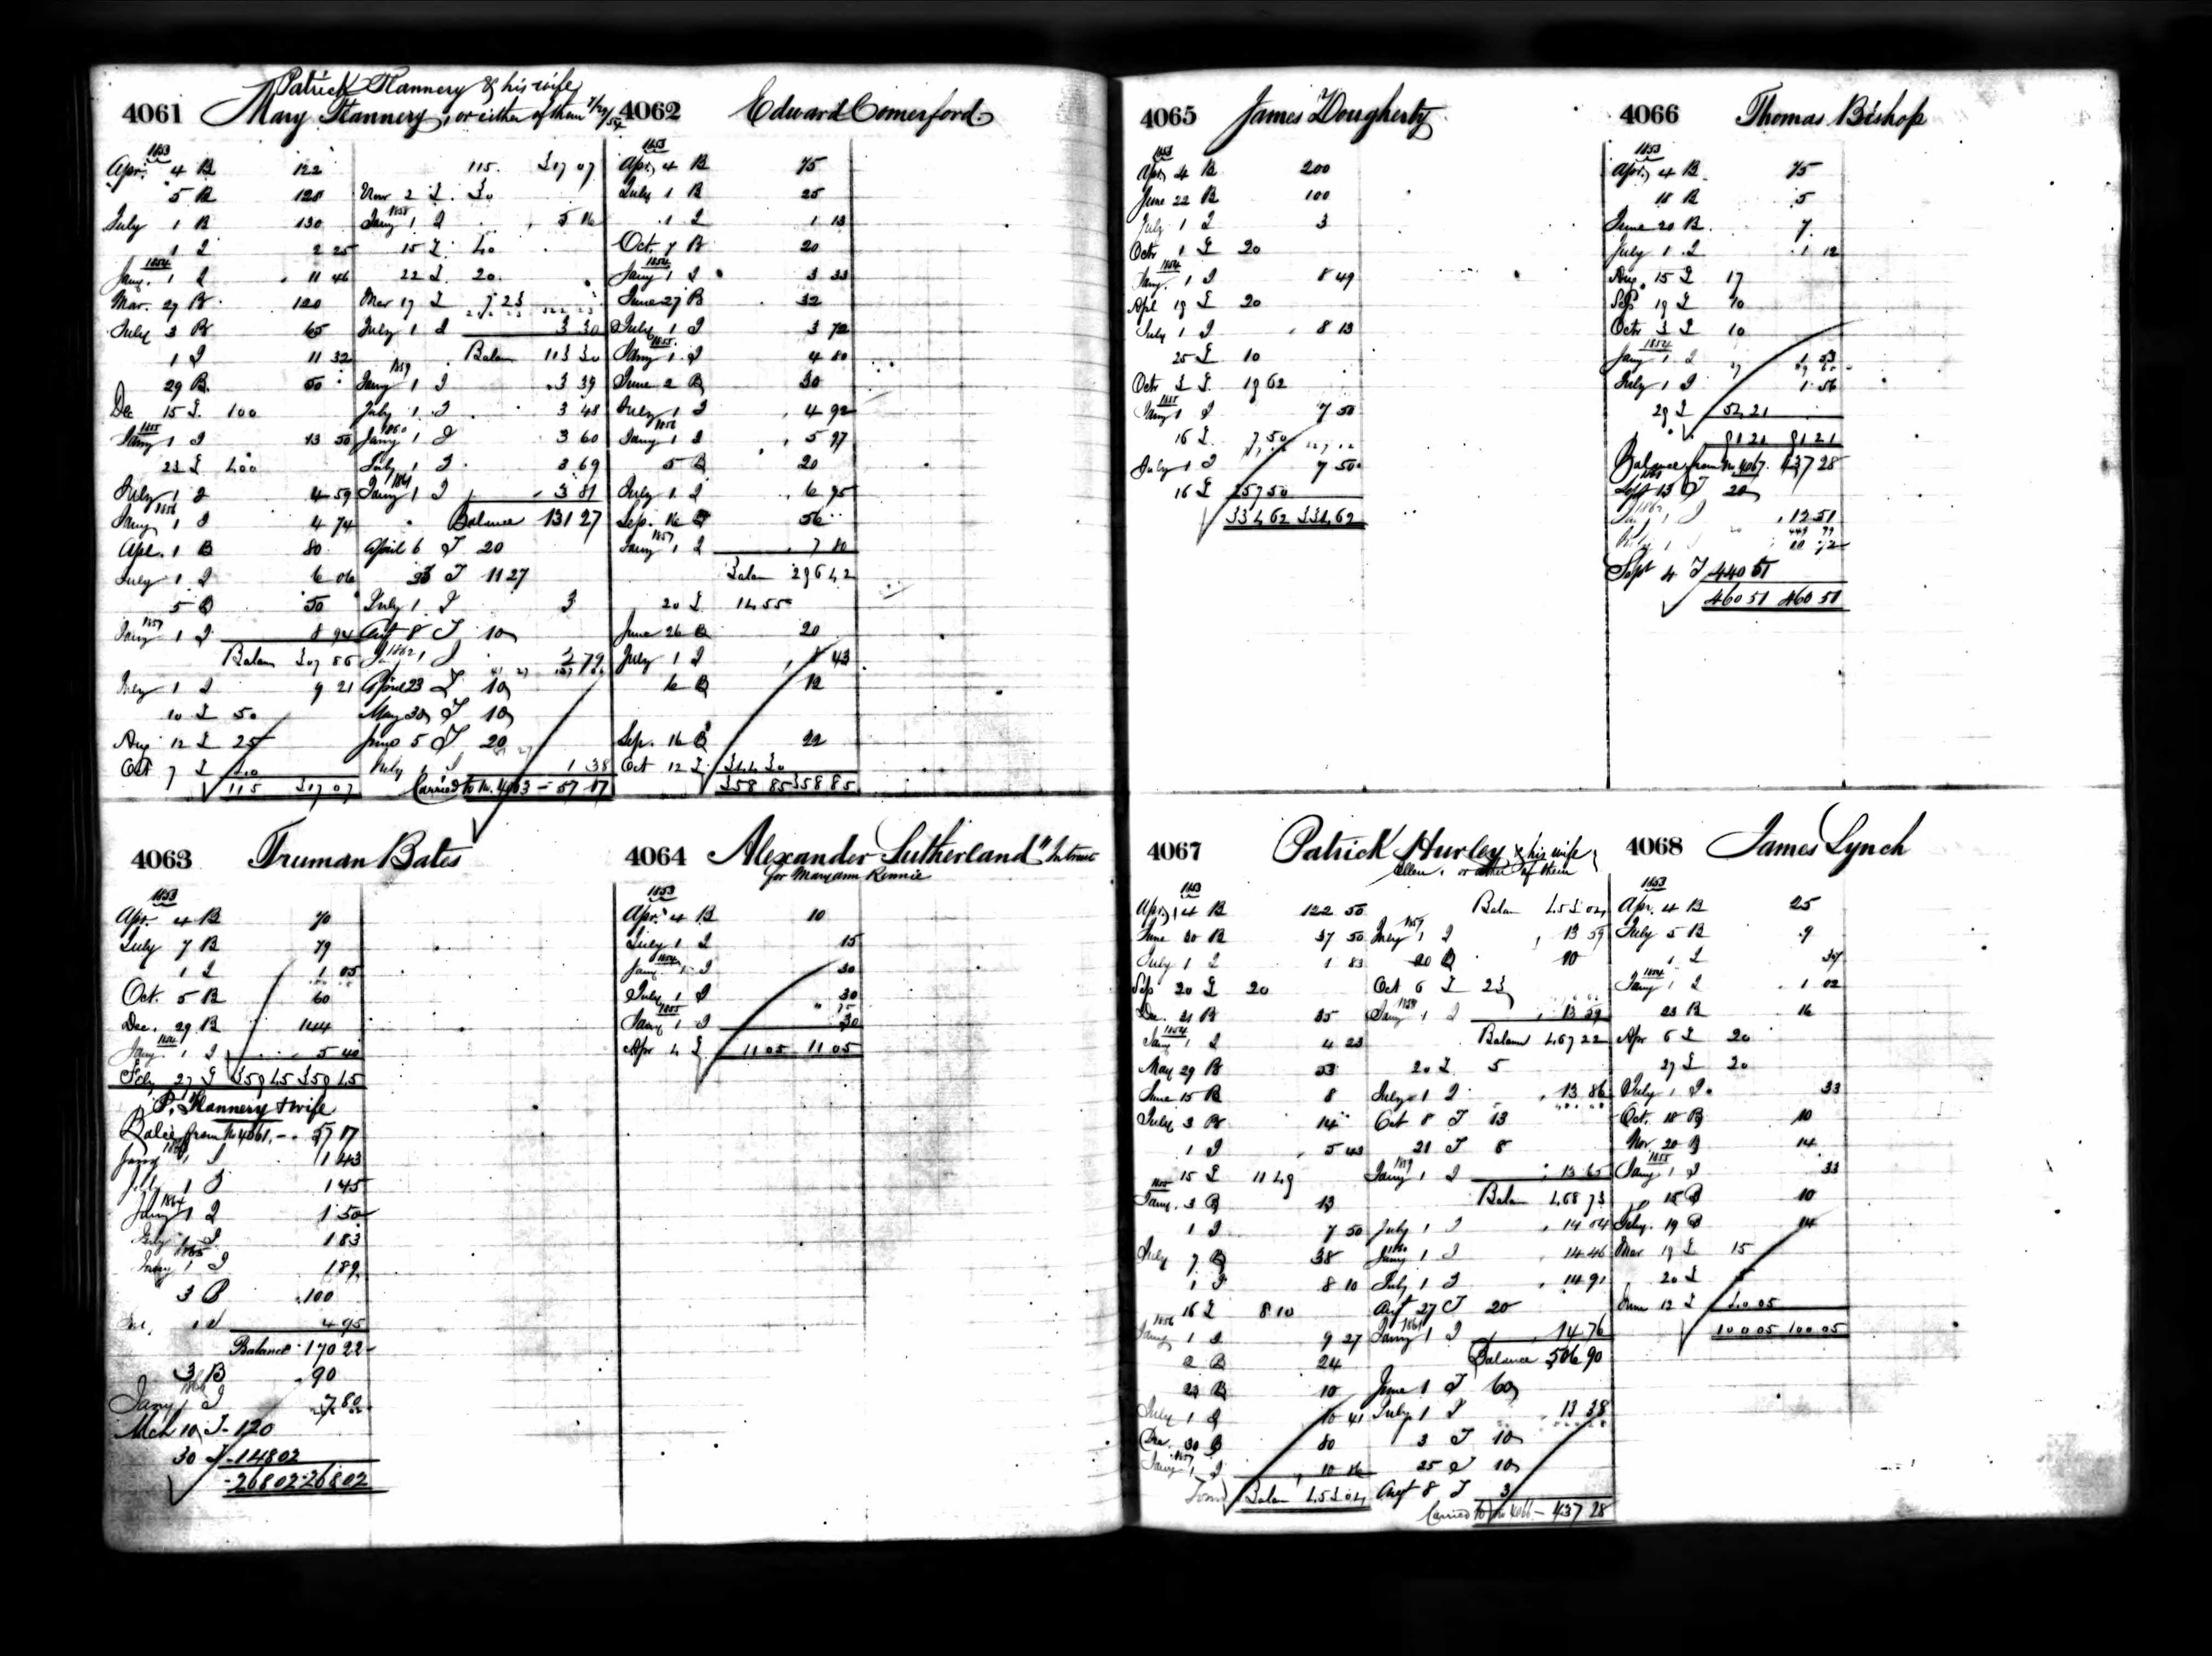 Patrick Flannery & his wife
4061 Mary Flannery, or either of them
1853
Apr. 4 B 122
5 B 128
July 1 B 130
1 I 2 25
1854
Jany. 1 I 11 46
Mar. 27 B 120
July 3 B 65
1 I 11 32
29 B 50
Dec 15 L 100
1855
Jany 1 I 13 50
23 L 400
July 1 I 4 59
1856
Jany 1 I 4 74
Apl. 1 B 80
July 1 I 6 06
5 B 50
1857
Jany 1 I 8 94
Balan 307 86
July 1 I 9 21
10 L 50
Aug 12 L 25
Oct 7 L 40
115 317 07
115. 317 07
Nov 2 L 30
1858
Jany 1 I 5 16
15 L 40
22 L 20
Mar 17 L 7 23
July 1 I 3 30
Balan 113 30
1859
Jany 1 I 3 39
July 1 I 3 48
1860
Jany 1 I 3 60
July 1 I 3 69
1861
Jany 1 I 3 81
Balance 131 27
April 6 T 20
T 11 27
July 1 I 3
Aug 8 T 10
1862
Ja 1 I 2 79
April 23 T 10
May 30 T 10
June 5 T 20
July 1 I 1 38
Carried to No. 4063 – 57 17
4062 Edward Comerford
1853
Apr. 4 B 75
July 1 B 25
1 I 1 13
Oct. 7 B 20
1854
Jany 1 I 3 33
June 27 B 32
July 1 I 3 72
1855
Jany 1 I 4 80
June 2 B 30
July 1 I 4 92
1856
Jany 1 I 5 97
5 B 20
July 1 I 6 95
Sep. 16 B 56
1857
Jany 1 I 7 80
Balan 296 42
20 L 14 55
June 26 B 20
July 1 I 8 43
6 B 12
Sep. 16 B 22
Oct 12 L 344 30
358 85 358 85
4063 Truman Bates
1853
Apr. 4 B 70
July 7 B 79
1 I 1 05
Oct. 5 B 60
Dec. 29 B 144
1854
Jany 1 I 5 40
Feby 27 L 359 45 359 45
P. Flannery & wife
Balce from No 4061. – 57 17
Jany 1 I 1 43
July 1 I 1 45
1864
Jany 1 I 1 50
July 1 I 1 83
1865
Jany 1 I 1 89
3 B 100
1 I 4 95
Balance 170 22
3 B 90
1866
Jany 1 I 7 80
Mch 10 T – 120
30 T – 148 02
268 02 268 02
4064 Alexander Sutherland "In trust
for Maryann Rennie
1853
Apr. 4 B 10
July 1 I 15
1854
Jany. 1 I 30
July 1 I 30
1855
Jany 1 I 30
Apr 4 L 11 05 11 05
4065 James Dougherty
1853
Apr, 4 B 200
June 22 B 100
July 1 I 3
Octr 1 L 20
1854
Jany. 1 I 8 49
Apl 19 L 20
July 1 I 8 13
25 L 10
Octr 3 L 19 62
1855
Jany 1 I 7 50
16 L 7 50
July 1 I 7 50
16 L 257 50
334 62 334 62
4066 Thomas Bishop
1853
Apr, 4 B 75
18 B 5
June 20 B 7
July 1 I 1 12
Aug. 15 L 17
Sep 19 L 10
Octr 3 L 10
1854
Jany 1 I 1 53
July 1 I 1 56
29 L 54 21
91 21 91 21
Balance from No 4067. 437 28
Sept 13 T 20
1862
Ja 1 I 12 51
Sept 4 T 440 51
460 51 460 51
4067 Patrick Hurley & his wife
Ellen, or either of them
1853
Apr, 4 B 122 50
June 30 B 37 50
July 1 I 1 83
Sep 20 L 20
Dec. 21 B 35
1854
Jany 1 I 4 23
May 29 B 33
June 15 B 8
July 3 B 14
1 I 5 43
15 L 11 49
1855
Jany. 3 B 13
1 I 7 50
July 7 B 38
1 I 8 10
16 L 8 10
1856
Jany 1 I 9 27
2 B 24
23 B 10
July 1 I 10 41
Dec. 30 B 80
1857
Jany 1 I 10 86
Balan 453 04
Balan 453 04
1857
July 1 I 13 59
20 B 10
Oct 6 L 23
1858
Jany 1 I 13 59
Balan 467 22
20 L 5
July 1 I 13 86
Oct 8 T 13
21 T 8
1859
Jany 1 I 13 65
Balan 468 73
July 1 I 14 04
1860
Jany 1 I 14 46
July 1 I 14 91
Augt 27 T 20
1861
Jany 1 I 14 76
Balance 506 90
June 1 T 60
July 1 I 13 38
3 T 10
25 T 10
Augt 8 T 3
Carried to No 4066 – 437 28
4068 James Lynch
1853
Apr. 4 B 25
July 5 B 9
1 I 37
1854
Jany 1 I 1 02
23 B 16
Apr 6 L 20
27 L 20
July 1 I 33
Oct. 18 B 10
Nov 20 B 14
1855
Jany 1 I 33
15 B 10
Feby. 19 B 14
Mar 19 L 15
20 L 5
June 12 L 40 05
100 05 100 05